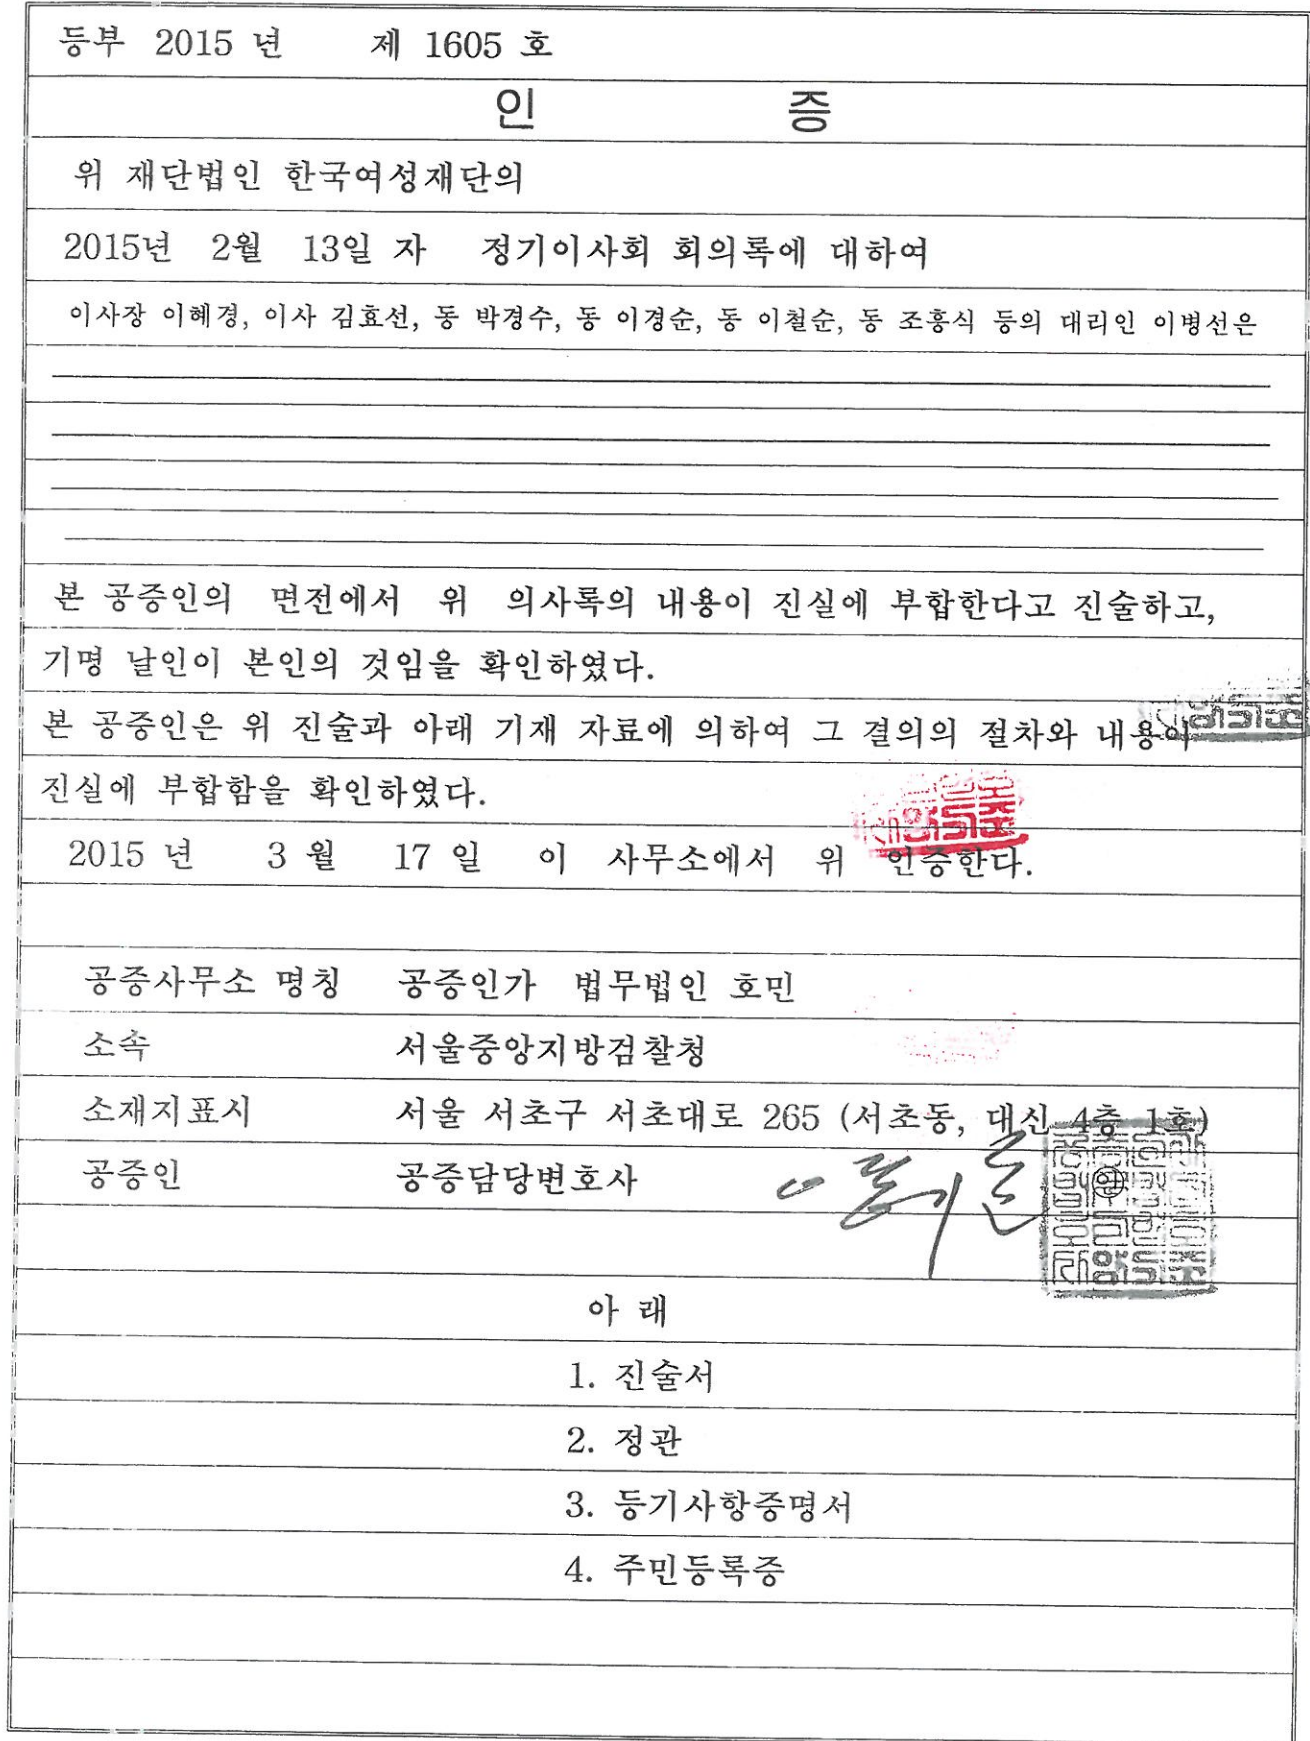 등부 2015 년 제 1605 호
인 증
위 재단법인 한국여성재단의
2015년 2월 13일 자 정기이사회 회의록에 대하여
이사장 이혜경, 이사 김효선, 동 박경수, 동 이경순, 동 이철순, 동 조흥식 등의 대리인 이병선은
본 공증인의 면전에서 위 의사록의 내용이 진실에 부합한다고 진술하고,
기명 날인이 본인의 것임을 확인하였다.
본 공증인은 위 진술과 아래 기재 자료에 의하여 그 결의의 절차와 내용이
진실에 부합함을 확인하였다.
2015 년 3 월 17 일 이 사무소에서 위 인증한다.
공증사무소 명칭 공증인가 법무법인 호민
소속 서울중앙지방검찰청
소재지표시 서울 서초구 서초대로 265 (서초동, 대신 4층 1호)
공증인 공증담당변호사
아 래
1. 진술서
2. 정관
3. 등기사항증명서
4. 주민등록증